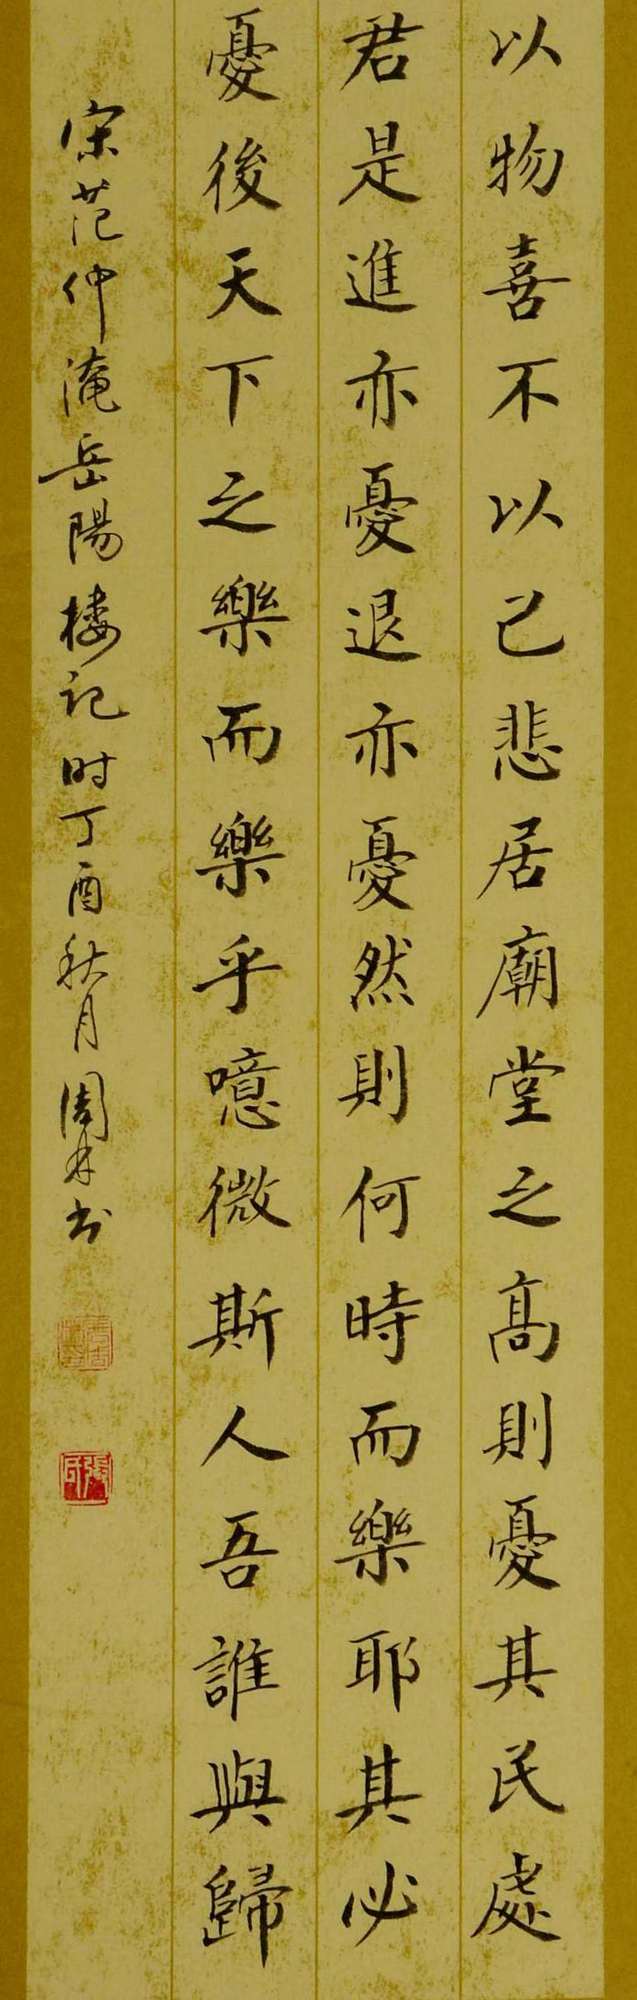 以物喜不以己悲居廟堂之高則憂其民處
君是進亦憂退亦憂然則何時而樂耶其必
憂後天下之樂而樂乎噫微斯人吾誰與歸
宋范仲淹岳陽楼记时丁酉秋月周本书